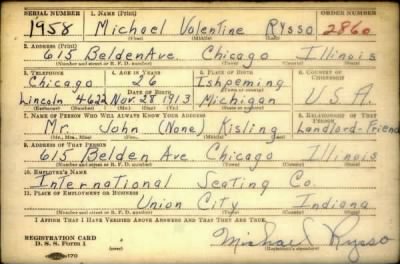 SERIAL NUMBER 1. NAME (Print) ORDER NUMBER
1958 Michael Valentine Rysso 2860
(First) (Middle) (Last)
2. ADDRESS (Print)
615 Belden Ave. Chicago Illinois
(Number and street or R. F. D. number) (Town) (County) (State)
3. TELEPHONE 4. AGE IN YEARS 5. PLACE OF BIRTH 6. COUNTRY OF CITIZENSHIP
Chicago 26 Ishpeming
DATE OF BIRTH (Town or county)
Lincoln 4622 Nov. 28 1913 Michigan U.S.A.
(Exchange) (Number) (Mo.) (Day) (Yr.) (State or country)
7. NAME OF PERSON WHO WILL ALWAYS KNOW YOUR ADDRESS 8. RELATIONSHIP OF THAT PERSON
Mr. John (None) Kisling Landlord-Friend
(Mr., Mrs., Miss) (First) (Middle) (Last)
9. ADDRESS OF THAT PERSON
615 Belden Ave Chicago Illinois
(Number and street or R. F. D. number) (Town) (County) (State)
10. EMPLOYER'S NAME
International Seating Co.
11. PLACE OF EMPLOYMENT OR BUSINESS
Union City Indiana
(Number and street or R. F. D. number) (Town) (County) (State)
I AFFIRM THAT I HAVE VERIFIED ABOVE ANSWERS AND THAT THEY ARE TRUE.
REGISTRATION CARD
D. S. S. Form 1 Michael Rysso
(Registrant's signature)